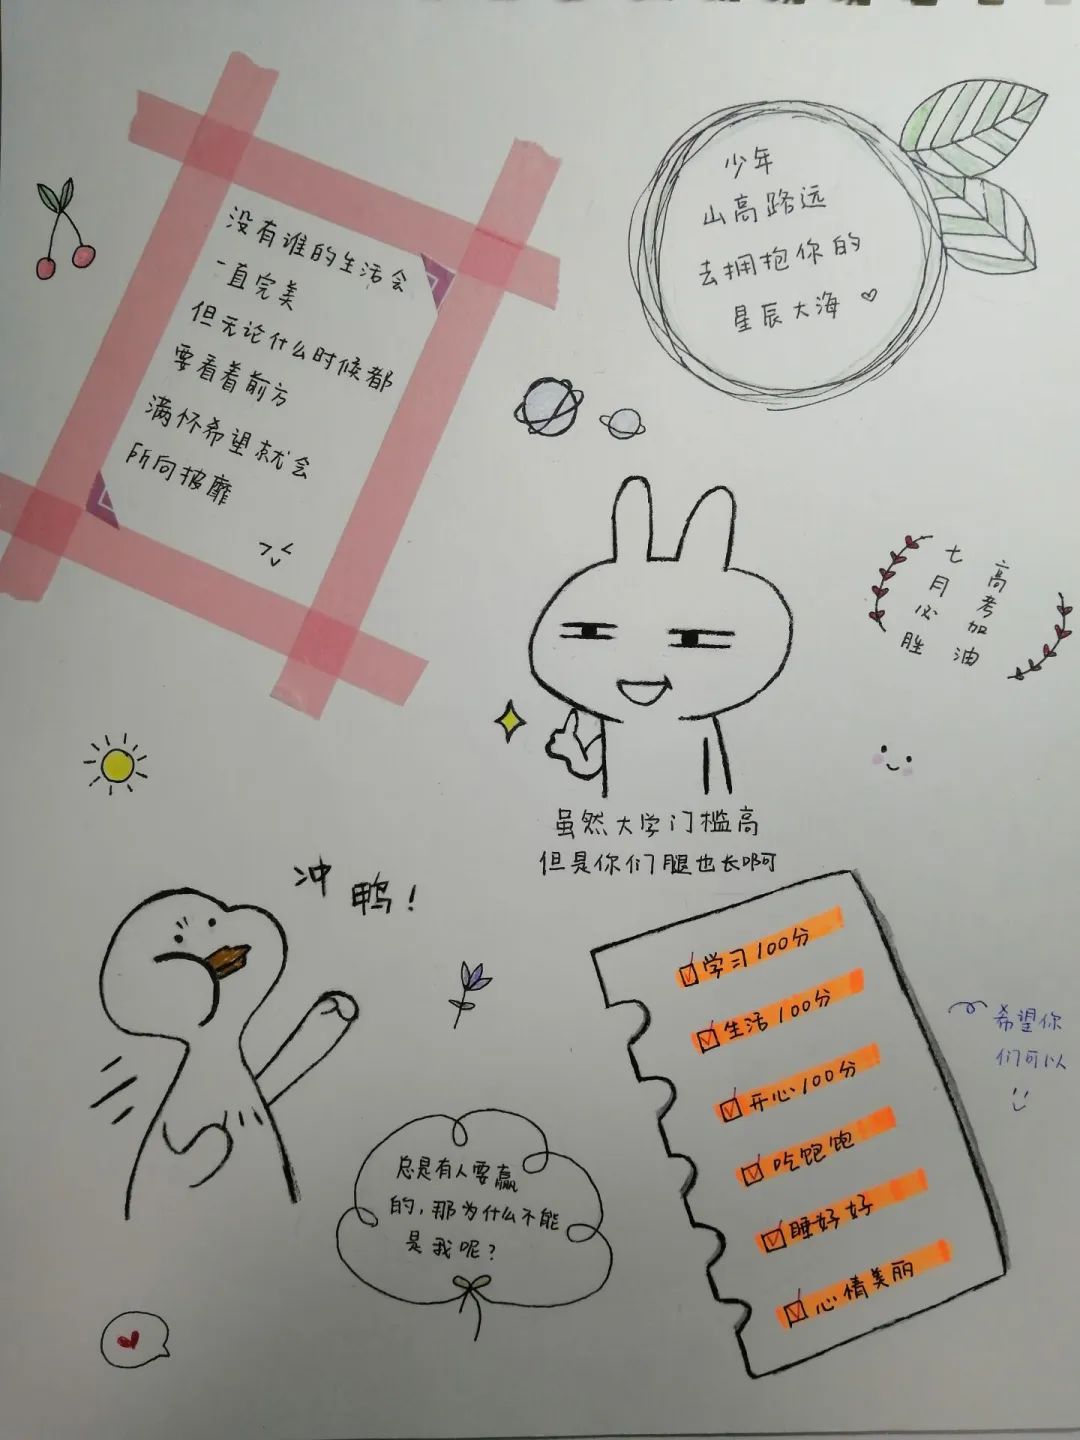 没有谁的生活会
一直完美
但无论什么时候都
要看着前方
满怀希望就会
所向披靡
少年
山高路远
去拥抱你的
星辰大海
高考加油
七月必胜
虽然大学门槛高
但是你们腿也长啊
冲鸭!
学习100分
生活100分
开心100分
吃饱饱
睡好好
心情美丽
希望你
们可以
总是有人要赢
的,那为什么不能
是我呢?